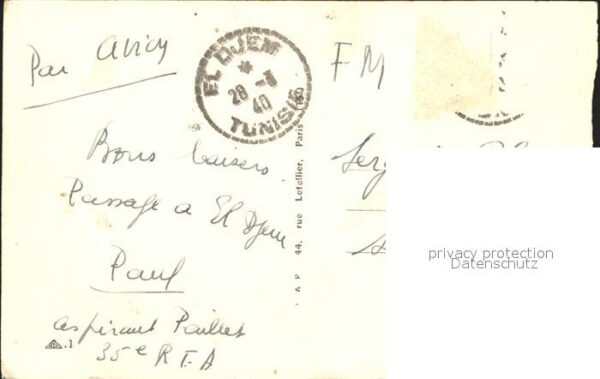 Par avion
EL DJEM
28 -3
40
TUNISIE
F M
Bons baisers
Passage a El Djem
Paul
aspirant Paillet
35e R T A
.1
44, rue Letellier, Paris
privacy protection
Datenschutz